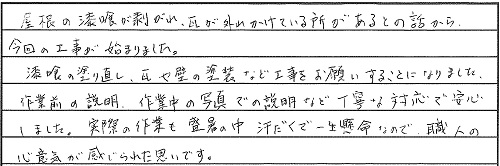 屋根の漆喰が剥がれ、瓦が外れかけている所があるとの話から、
今回の工事が始まりました。
漆喰の塗り直し、瓦や壁の塗装など工事をお願いすることになりました。
作業前の説明、作業中の写真での説明など丁寧な対応で安心
しました。実際の作業も猛暑の中 汗だくで一生懸命なので、職人の
心意気が感じられた思いです。